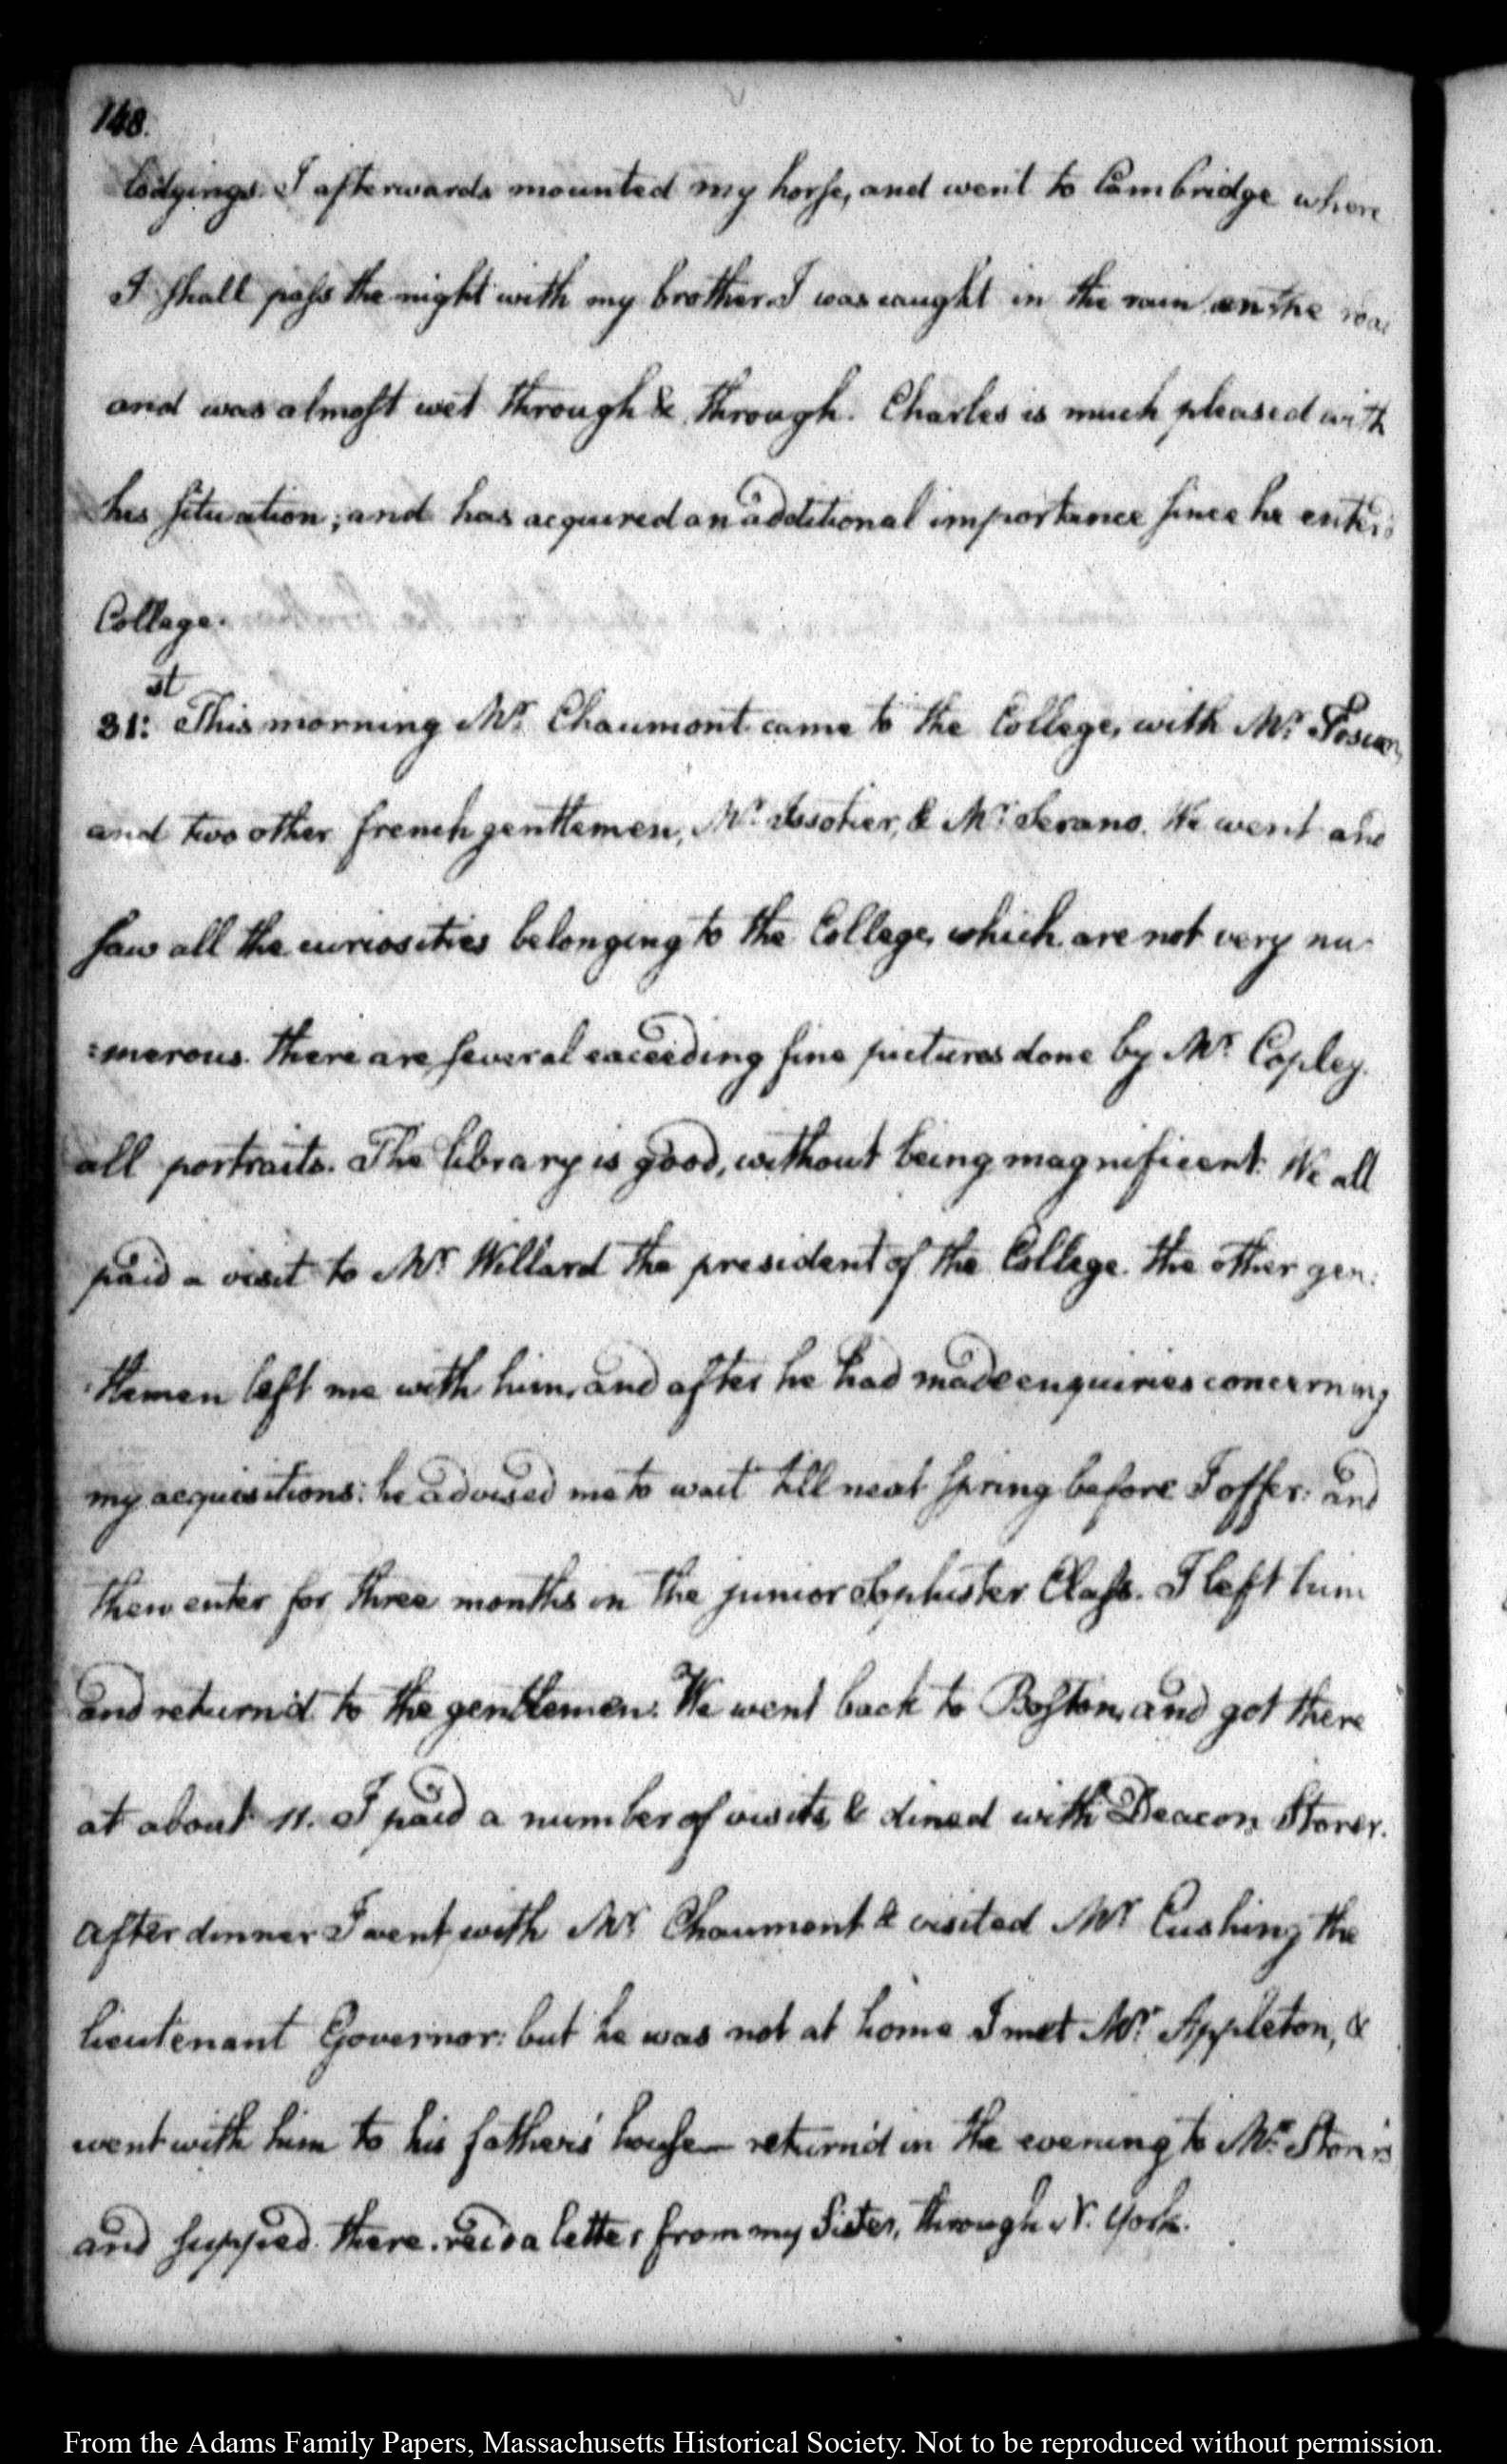 148.
lodgings. I afterwards mounted my horse, and went to Cambridge where
I shall pass the night with my brother. I was caught in the rain on the road
and was almost wet through & through. Charles is much pleased with
his situation; and has acquired an additional importance since he enter'd
College.
31:st This morning Mr. Chaumont came to the College, with Mr.
and two other french gentlemen, Mr. Issotier, & Mr. Serano. We went and
saw all the curiosities belonging to the College, which are not very nu-
=merous. there are several exceeding fine pictures done by Mr. Copley.
all portraits. The library is good, without being magnificent. We all
paid a visit to Mr. Willard the president of the College. the other gen:
:tlemen left me with him, and after he had made enquiries concerning
my acquisitions: he advised me to wait till next Spring before I offer: and
then enter for three months in the junior Sophister Class. I left him
and return'd to the gentlemen. We went back to Boston, and got there
at about 11. I paid a number of visits, & dined with Deacon Storer.
after dinner I went with Mr. Chaumont & visited Mr. Cushing the
lieutenant Governor: but he was not at home I met Mr. Appleton, &
went with him to his father's house— return'd in the evening to Mr. Storer's
and supped there. recd a letter from my Sister, through N. York.
From the Adams Family Papers, Massachusetts Historical Society. Not to be reproduced without permission.